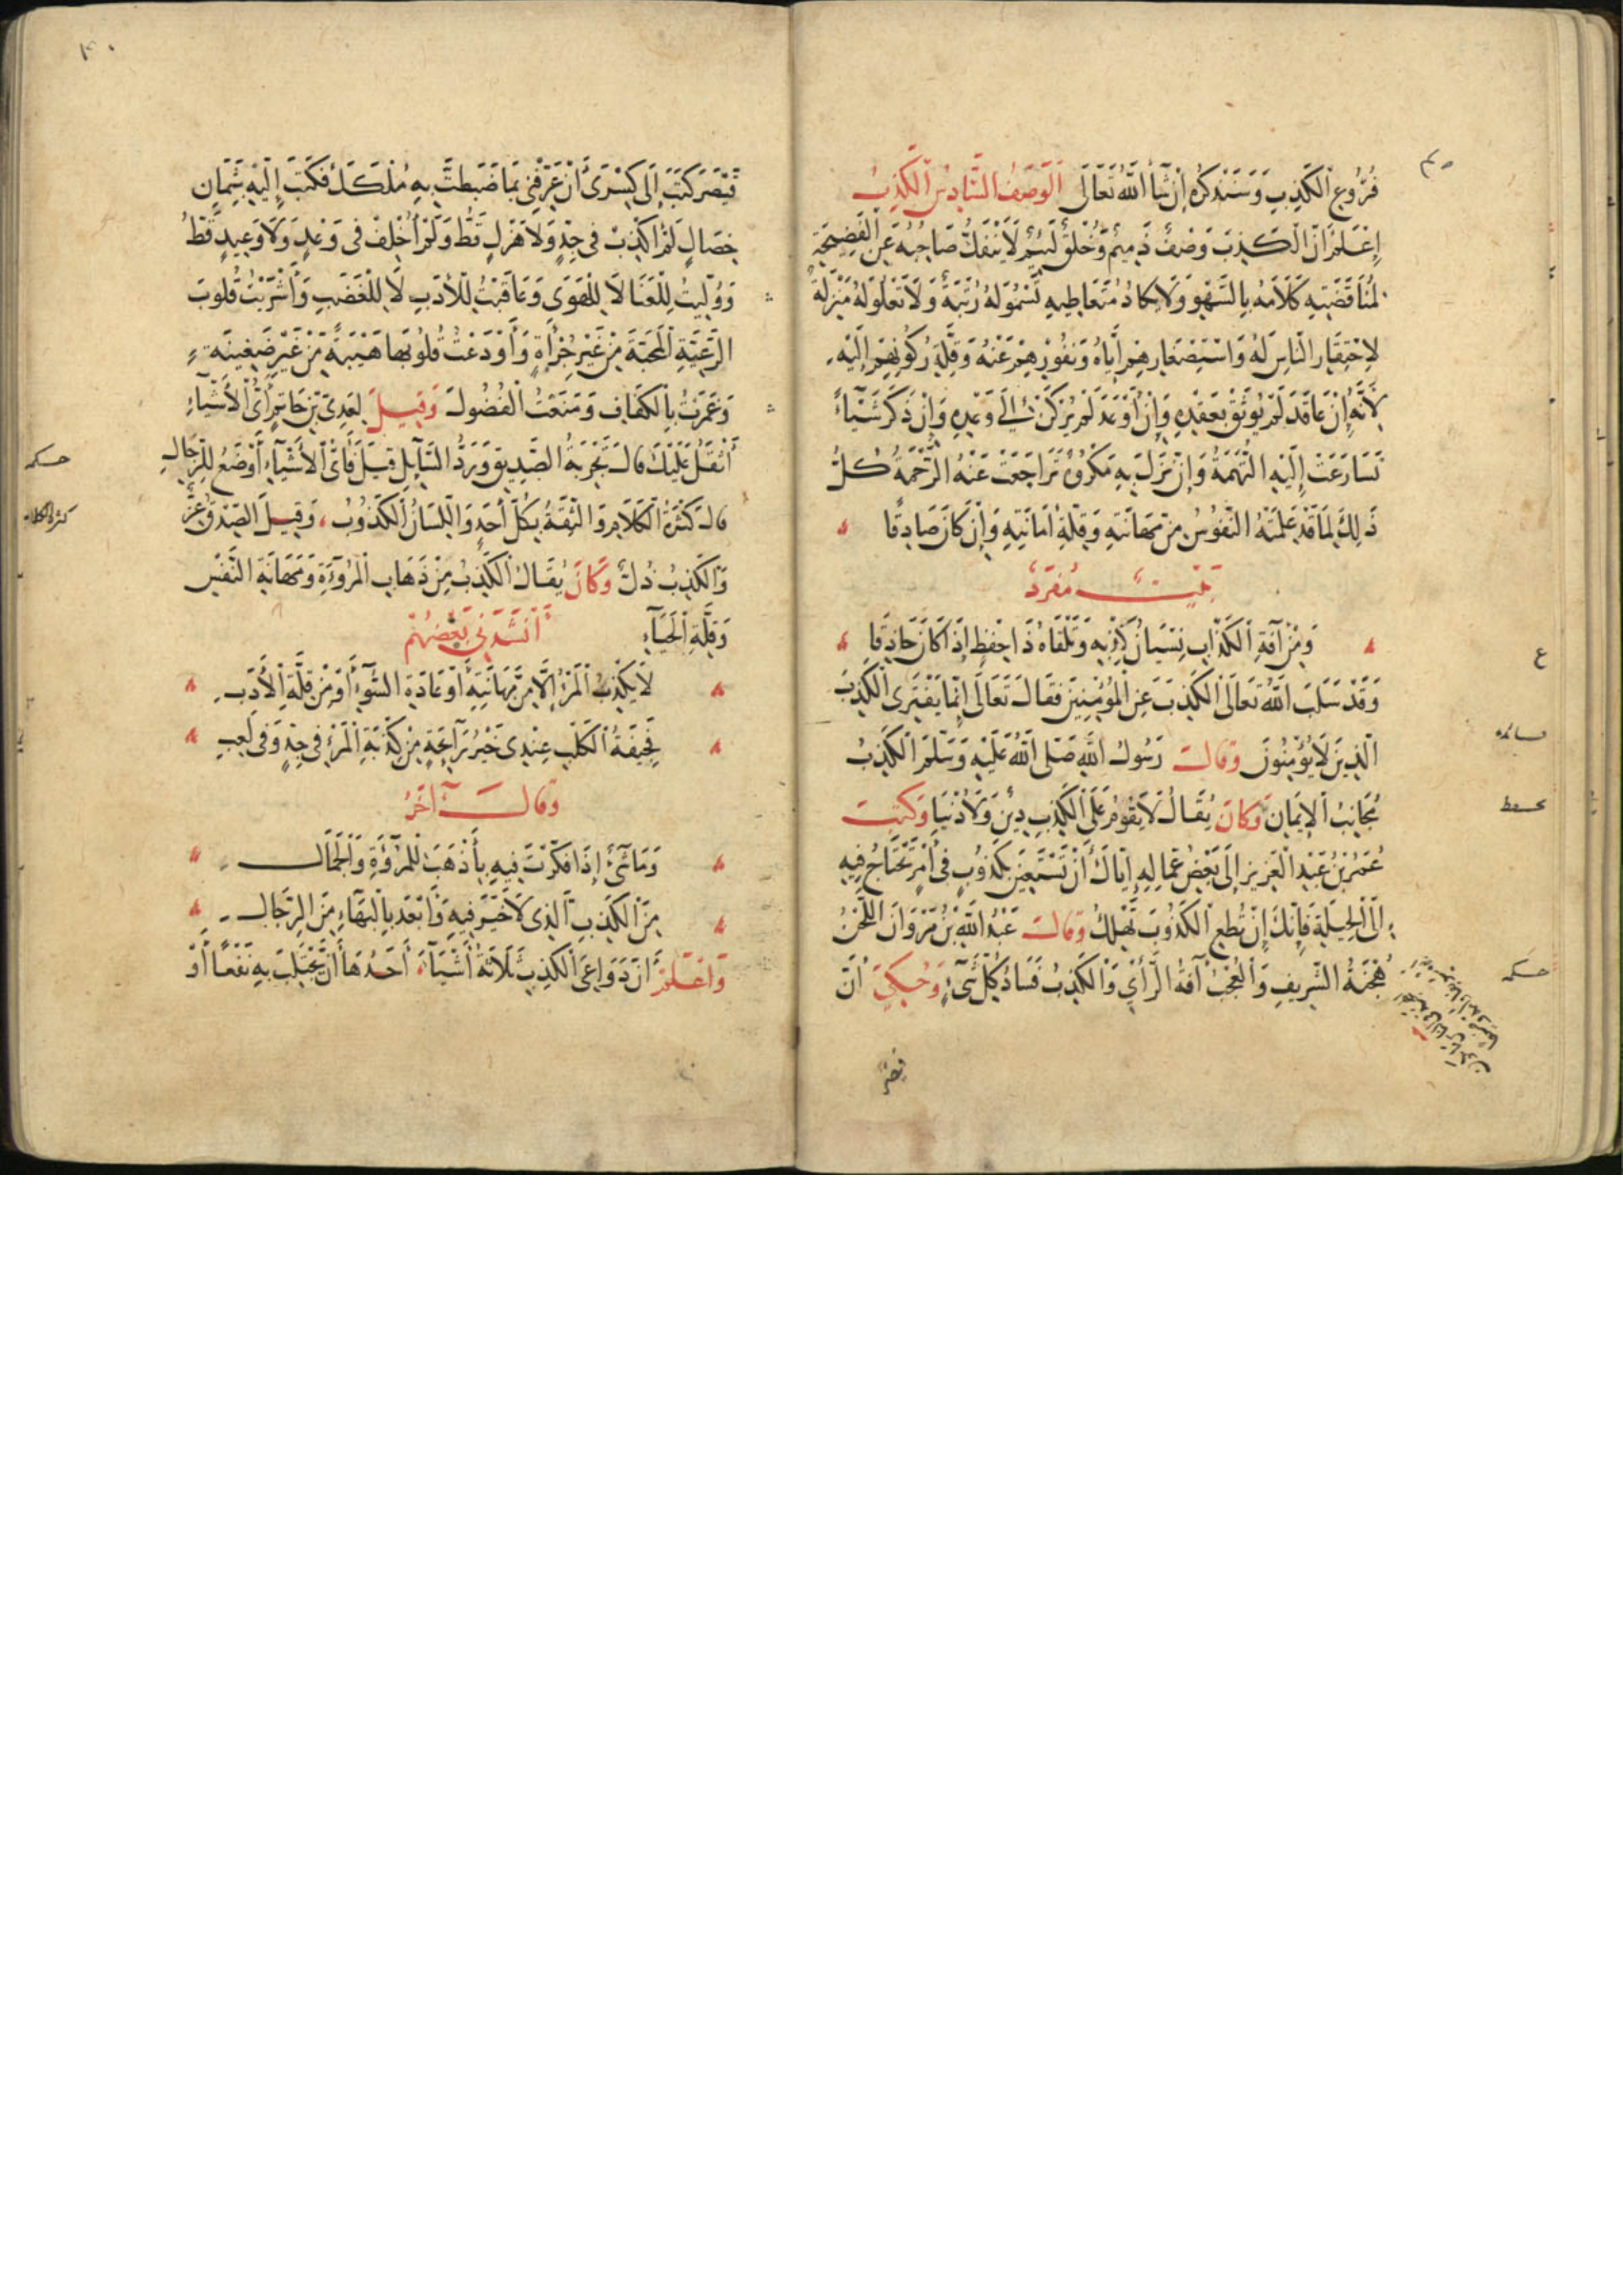 فُرُوعِ الْكَذِبِ وَسَنَذْكُرُهُ إِنْ شَآءَ اللَّهُ تَعَالَى الْوَصْفُ السَّادِسُ الْكَذِبُ
إِعْلَمْ أَنَّ الْكَذِبَ وَصْفٌ ذَمِيمٌ وَخُلُقٌ لَئِيمٌ لَا يَنْفَكُّ صَاحِبُهُ عَنِ الْفَضِيحَةِ
لِمُنَاقَضَتِهِ كَلَامَهُ بِالسَّهْوِ وَلَا يَكَادُ مُتَعَاطِيهِ تَسْمُو لَهُ رُتْبَةٌ وَلَا تَعْلُو لَهُ مَنْزِلَةٌ
لِاحْتِقَارِ النَّاسِ لَهُ وَاسْتِصْغَارِهِمْ إِيَّاهُ وَنُفُورِهِمْ عَنْهُ وَقِلَّةِ رُكُونِهِمْ إِلَيْهِ
لِأَنَّهُ إِنْ عَاقَدَ لَمْ يُوثَقْ بِعَقْدِهِ وَإِنْ أَوْعَدَ لَمْ يُرْكَنْ إِلَى وَعْدِهِ وَإِنْ ذَكَرَ شَيْئًا
تَسَارَعَتْ إِلَيْهِ التُّهَمَةُ وَإِنْ نَزَلَ بِهِ مَكْرُوهٌ تَرَاجَعَتْ عَنْهُ الرَّحْمَةُ كُلُّ
ذَلِكَ لِمَا قَدْ عَلِمَتْهُ النُّفُوسُ مِنْ مَهَانَتِهِ وَقِلَّةِ أَمَانَتِهِ وَإِنْ كَانَ صَادِقًا
بَيْتٌ مُفْرَدٌ
وَمِنْ آفَةِ الْكَذَّابِ نِسْيَانُ كِذْبِهِ وَتَلْقَاهُ ذَا حِفْظٍ إِذَا كَانَ حَاذِقًا
ع
وَقَدْ سَلَبَ اللَّهُ تَعَالَى الْكَذِبَ عَنِ الْمُؤْمِنِينَ فَقَالَ تَعَالَى إِنَّمَا يَفْتَرِى الْكَذِبَ
الَّذِينَ لَا يُؤْمِنُونَ وَقَالَ رَسُولُ اللَّهِ صَلَّى اللَّهُ عَلَيْهِ وَسَلَّمَ الْكَذِبُ
مُجَانِبُ الْإِيمَانِ وَكَانَ يُقَالُ لَا يَقُومُ عَلَى الْكَذِبِ دِينٌ وَلَا دُنْيَا وَكَتَبَ
عُمَرُ بْنُ عَبْدِ الْعَزِيزِ إِلَى بَعْضِ عُمَّالِهِ إِيَّاكَ أَنْ تَسْتَعِينَ بِكَذُوبٍ فِى أَمْرٍ تَحْتَاجُ فِيهِ
إِلَى الْحِيلَةِ فَإِنَّكَ إِنْ تُطِعِ الْكَذُوبَ تَهْلِكُ وَقَالَ عَبْدُ اللَّهِ بْنُ مَرْوَانَ اللَّحْنُ
هُجْنَةُ الشَّرِيفِ وَالْعُجْبُ آفَةُ الرَّأْيِ وَالْكَذِبُ فَسَادُ كُلِّ شَىْءٍ وَحُكِيَ أَنَّ
قيصر
قَيْصَرَ كَتَبَ إِلَى كِسْرَى أَنْ عَرِّفْنِى بِمَا ضَبَطْتَ بِهِ مُلْكَكَ فَكَتَبَ إِلَيْهِ بِثَمَانِ
خِصَالٍ لَمْ أَكْذِبْ فِى جِدٍّ وَلَا هَزْلٍ قَطُّ وَلَمْ أُخْلِفْ فِى وَعْدٍ وَلَا وَعِيدٍ قَطُّ
وَوَلَّيْتُ لِلْغَنَا لَا لِلْهَوَى وَعَاقَبْتُ لِلْأَدَبِ لَا لِلْغَضَبِ وَأَشْرَبْتُ قُلُوبَ
الرَّعِيَّةِ الْمَحَبَّةَ مِنْ غَيْرِ جُرْأَةٍ وَأَوْدَعْتُ قُلُوبَهَا هَيْبَةً مِنْ غَيْرِ ضَغِينَةٍ
وَعَمَرْتُ بِالْكَفَافِ وَمَنَعْتُ الْفُضُولَ وَقِيلَ لِعَدِىِّ بْنِ حَاتِمٍ أَىُّ الْأَشْيَآءِ
أَثْقَلُ عَلَيْكَ قَالَ تَجْرِبَةُ الصَّدِيقِ وَرَدُّ السَّآئِلِ قِيلَ فَأَىُّ الْأَشْيَآءِ أَوْضَعُ لِلرِّجَالِ
قَالَ كَثْرَةُ الْكَلَامِ وَالثِّقَةُ بِكُلِّ أَحَدٍ وَاللِّسَانُ الْكَذُوبُ وَقِيلَ الصِّدْقُ عِزٌّ
كثرة الكلام
وَالْكَذِبُ ذُلٌّ وَكَانَ يُقَالُ الْكَذِبُ مِنْ ذَهَابِ الْمُرُوَّةِ وَمَهَانَةِ النَّفْسِ
وَقِلَّةِ الْحَيَآءِ أَنْشَدَنِى بَعْضُهُمْ
لَا يَكْذِبُ الْمَرْءُ إِلَّا مِنْ مَهَانَتِهِ أَوْ عَادَةِ السُّوٓءِ أَوْ مِنْ قِلَّةِ الْأَدَبِ
لَجِيفَةُ الْكَلْبِ عِنْدِى خَيْرُ رَآئِحَةٍ مِنْ كَذْبَةِ الْمَرْءِ فِى جِدٍّ وَفِى لَعِبِ
وَقَالَ آخَرُ
وَمَا شَىْءٌ إِذَا فَكَّرْتَ فِيهِ بِأَذْهَبَ لِلْمُرُوَّةِ وَالْجَمَالِ
مِنَ الْكَذِبِ الَّذِى لَا خَيْرَ فِيهِ وَأَبْعَدَ بِالْبَهَاءِ مِنَ الرِّجَالِ
وَاعْلَمْ أَنَّ دَوَاعِىَ الْكَذِبِ ثَلَاثَةُ أَشْيَآءَ أَحَدُهَا أَنْ يَجْتَلِبَ بِهِ نَفْعًا أَوْ